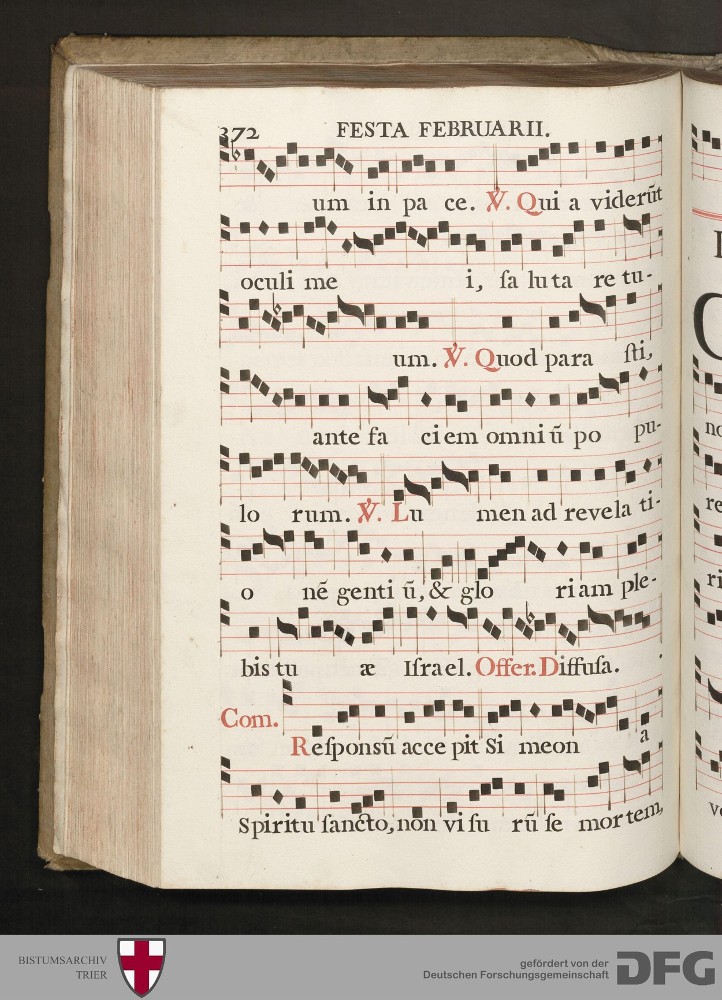 372 FESTA FEBRUARII.
um in pa ce. ℣. Qui a viderūt
oculi me i, ſa lu ta re tu-
um. ℣. Quod para ſti,
ante fa ciem omni ū po pu-
lo rum. ℣. Lu men ad revela ti-
o nē genti ū, & glo riam ple-
bis tu æ Iſrael. Offer. Diffuſa.
Com.
Reſponsū acce pit Si meon a
Spiritu ſancto, non vi ſu rū ſe mortem,
BISTUMSARCHIV
TRIER
gefördert von der
Deutschen Forschungsgemeinschaft
DFG